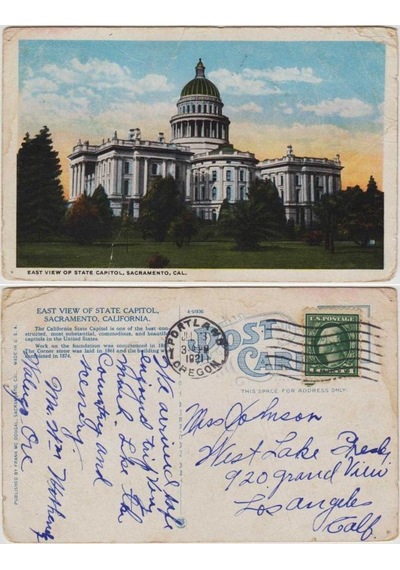 EAST VIEW OF STATE CAPITOL, SACRAMENTO, CAL.
EAST VIEW OF STATE CAPITOL,
SACRAMENTO, CALIFORNIA.
The California State Capitol is one of the best con-
structed, most substantial, commodious, and beautiful
capitols in the United States
Work on the foundation was commenced in
The Corner stone was laid in 1861 and the building was
finished in 1874.
PUBLISHED BY FRANK MC DOUGAL, SACRAMENTO, CAL. MADE IN U.S.A.
PORTLAND
3 PM
1921
OREGON
POST
CARD
THIS SPACE FOR ADDRESS ONLY
U.S. POSTAGE
Miss Johnson
West Lake
920 grand View
Los angeles
Calf.
arrived safe
trip very
much. Like the
Country and